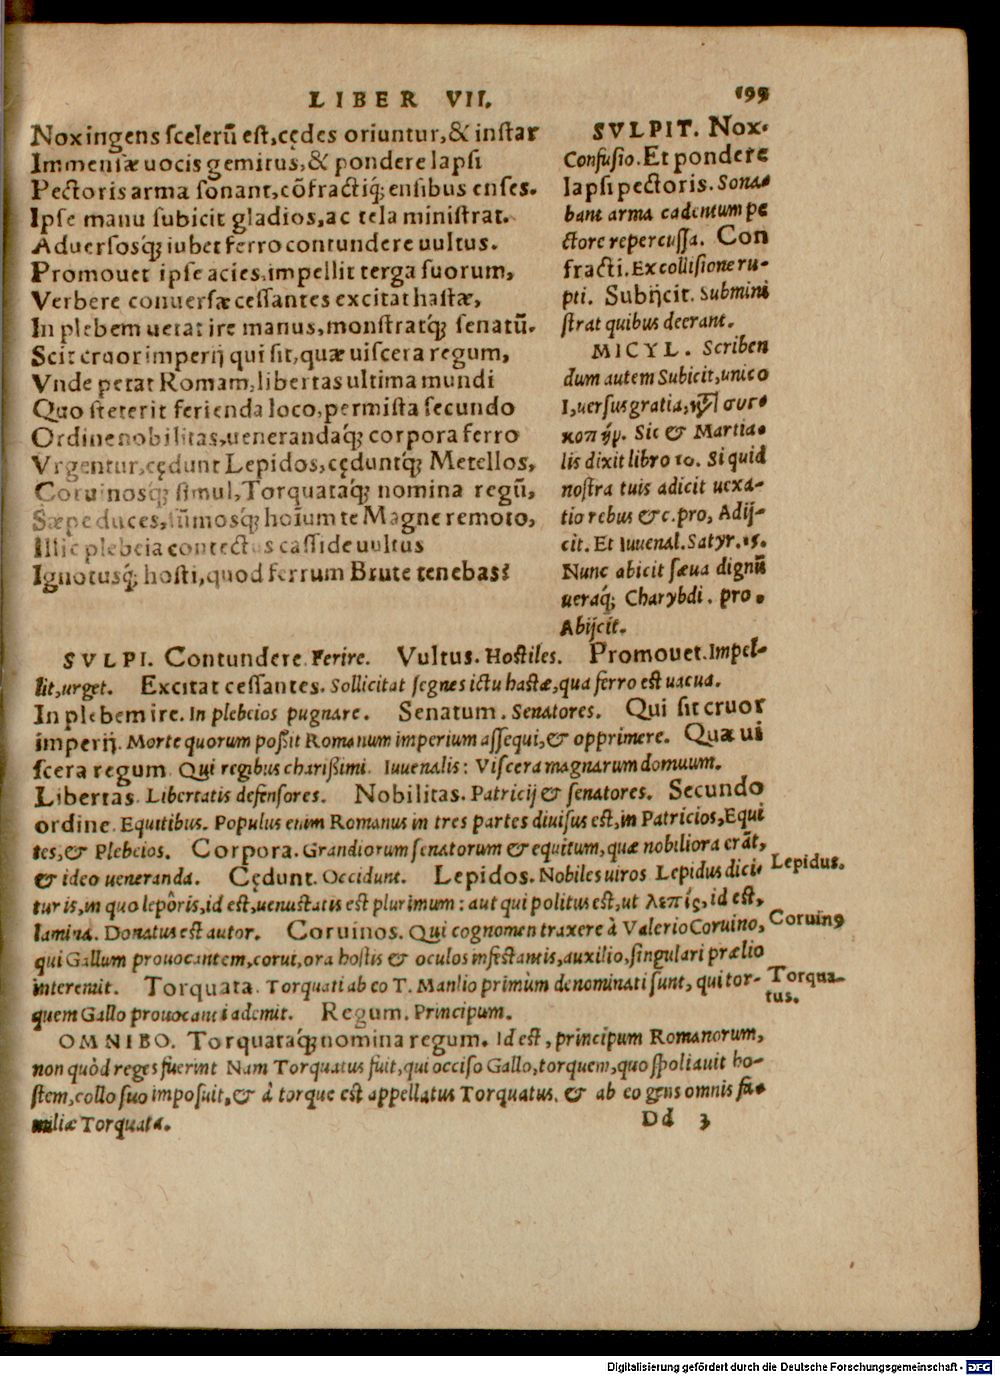 LIBER VII. 199
Nox ingens scelerū est, cędes oriuntur, & instar
Immensæ uocis gemitus, & pondere lapsi
Pectoris arma sonant, cōfractiq́; ensibus enses.
Ipse manu subicit gladios, ac tela ministrat.
Aduersosq́; iubet ferro contundere uultus.
Promouet ipse acies, impellit terga suorum,
Verbere conuersæ cessantes excitat hastæ,
In plebem uetat ire manus, monstratq́; senatū.
Scit cruor imperij qui sit, quæ uiscera regum,
Vnde petat Romam, libertas ultima mundi
Quo steterit ferienda loco, permista secundo
Ordine nobilitas, uenerandaq́; corpora ferro
Vrgentur, cędunt Lepidos, cęduntq́; Metellos,
Coruinosq́; simul, Torquataq́; nomina regū,
Sæpe duces, sūmosq́; hoīum te Magne remoto,
Illic plebeia contectus casside uultus
Ignotusq́; hosti, quod ferrum Brute tenebas?
SVLPIT. Nox.
Confusio. Et pondere
lapsi pectoris. Sona-
bant arma cadentum pe
ctore repercussa. Con
fracti. Ex collisione ru-
pti. Subijcit. Submini
strat quibus deerant.
MICYL. Scriben
dum autem Subicit, unico
I, uersus gratia, συγ-
κοπήν. Sic & Martia-
lis dixit libro 10. Si quid
nostra tuis adicit uexa-
tio rebus &c. pro, Adij-
cit. Et Iuuenal. Satyr. 15.
Nunc abicit sæua dignū
ueraq́; Charybdi. pro.
Abijcit.
SVLPI. Contundere. Ferire. Vultus. Hostiles. Promouet. Impel-
lit, urget. Excitat cessantes. Sollicitat segnes ictu hastæ, qua ferro est uacua.
In plebem ire. In plebeios pugnare. Senatum. Senatores. Qui sit cruor
imperij. Morte quorum poßit Romanum imperium assequi, & opprimere. Quæ ui
scera regum. Qui regibus charißimi. Iuuenalis: Viscera magnarum domuum.
Libertas. Libertatis defensores. Nobilitas. Patricij & senatores. Secundo
ordine. Equitibus. Populus enim Romanus in tres partes diuisus est, in Patricios, Equi
tes, & Plebeios. Corpora. Grandiorum senatorum & equitum, quæ nobiliora erāt,
& ideo ueneranda. Cędunt. Occidunt. Lepidos. Nobiles uiros Lepidus dici-
tur is, in quo lepôris, id est, uenustatis est plurimum: aut qui politus est, ut λεπίς, id est,
lamina. Donatus est autor. Coruinos. Qui cognomen traxere à Valerio Coruino,
qui Gallum prouocantem, corui, ora hostis & oculos infestantis, auxilio, singulari prælio
interemit. Torquata. Torquati ab eo T. Manlio primùm denominati sunt, qui tor-
quem Gallo prouocanti ademit. Regum. Principum.
OMNIBO. Torquataq́; nomina regum. Id est, principum Romanorum,
non quòd reges fuerint Nam Torquatus fuit, qui occiso Gallo, torquem, quo spoliauit ho-
stem, collo suo imposuit, & à torque est appellatus Torquatus, & ab eo gens omnis fa-
miliæ Torquata.
Lepidus.
Coruinꝰ
Torqua-
tus.
Dd 3
Digitalisierung gefördert durch die Deutsche Forschungsgemeinschaft - DFG